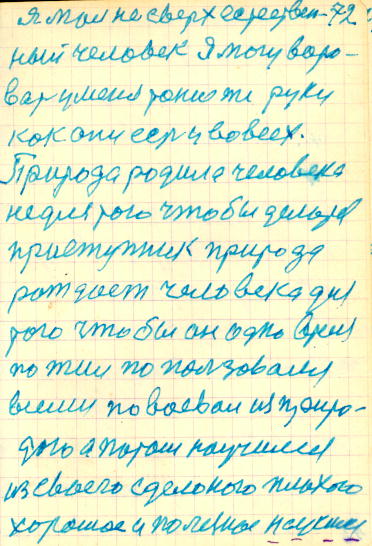 Я мол не сверхестествен- 72
ный человек Я могу воро-
ват у меня такие же руки
как они ест у вовсех.
Природа родила человека
не для того чтобы делатся
преступник природа
рождает человека для
того что бы он одно время
по жил по ползовался
всеми по воевал из приро-
дою а потом научился
из своего сделоного плохого
хорошое и полезное научил